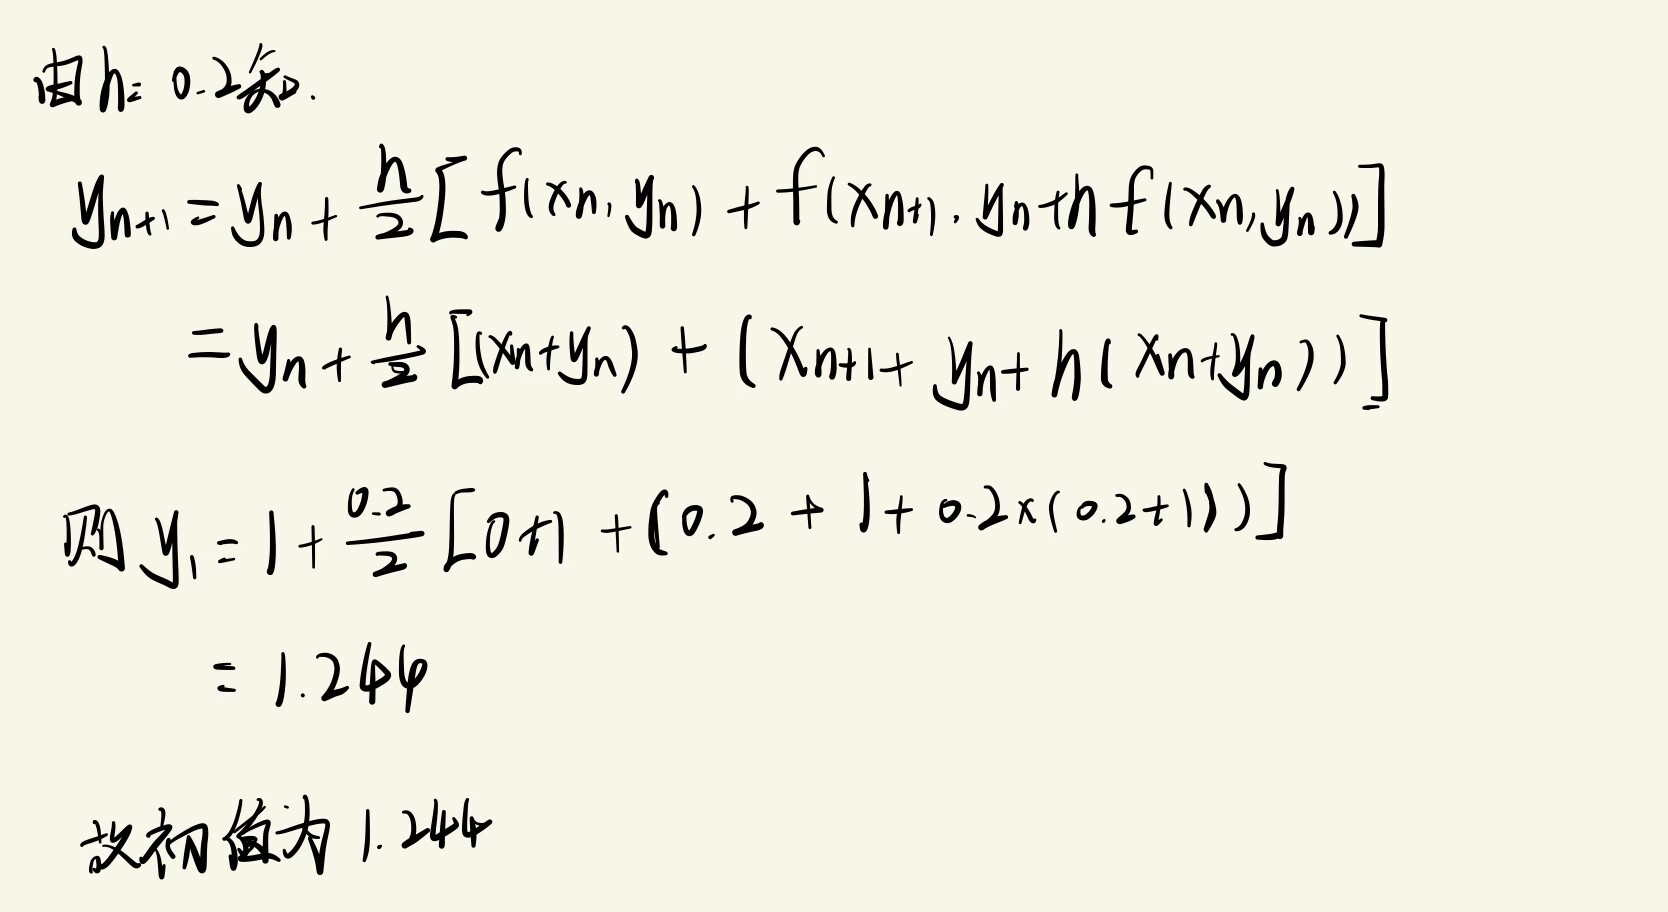 由h=0.2知.
yₙ₊₁=yₙ+h/2[f(xₙ,yₙ)+f(xₙ₊₁,yₙ+hf(xₙ,yₙ))]
=yₙ+h/2[(xₙ+yₙ)+(xₙ₊₁+yₙ+h(xₙ+yₙ))]
则y₁=1+0.2/2[0+1+(0.2+1+0.2×(0.2+1))]
=1.244
故初值为1.244